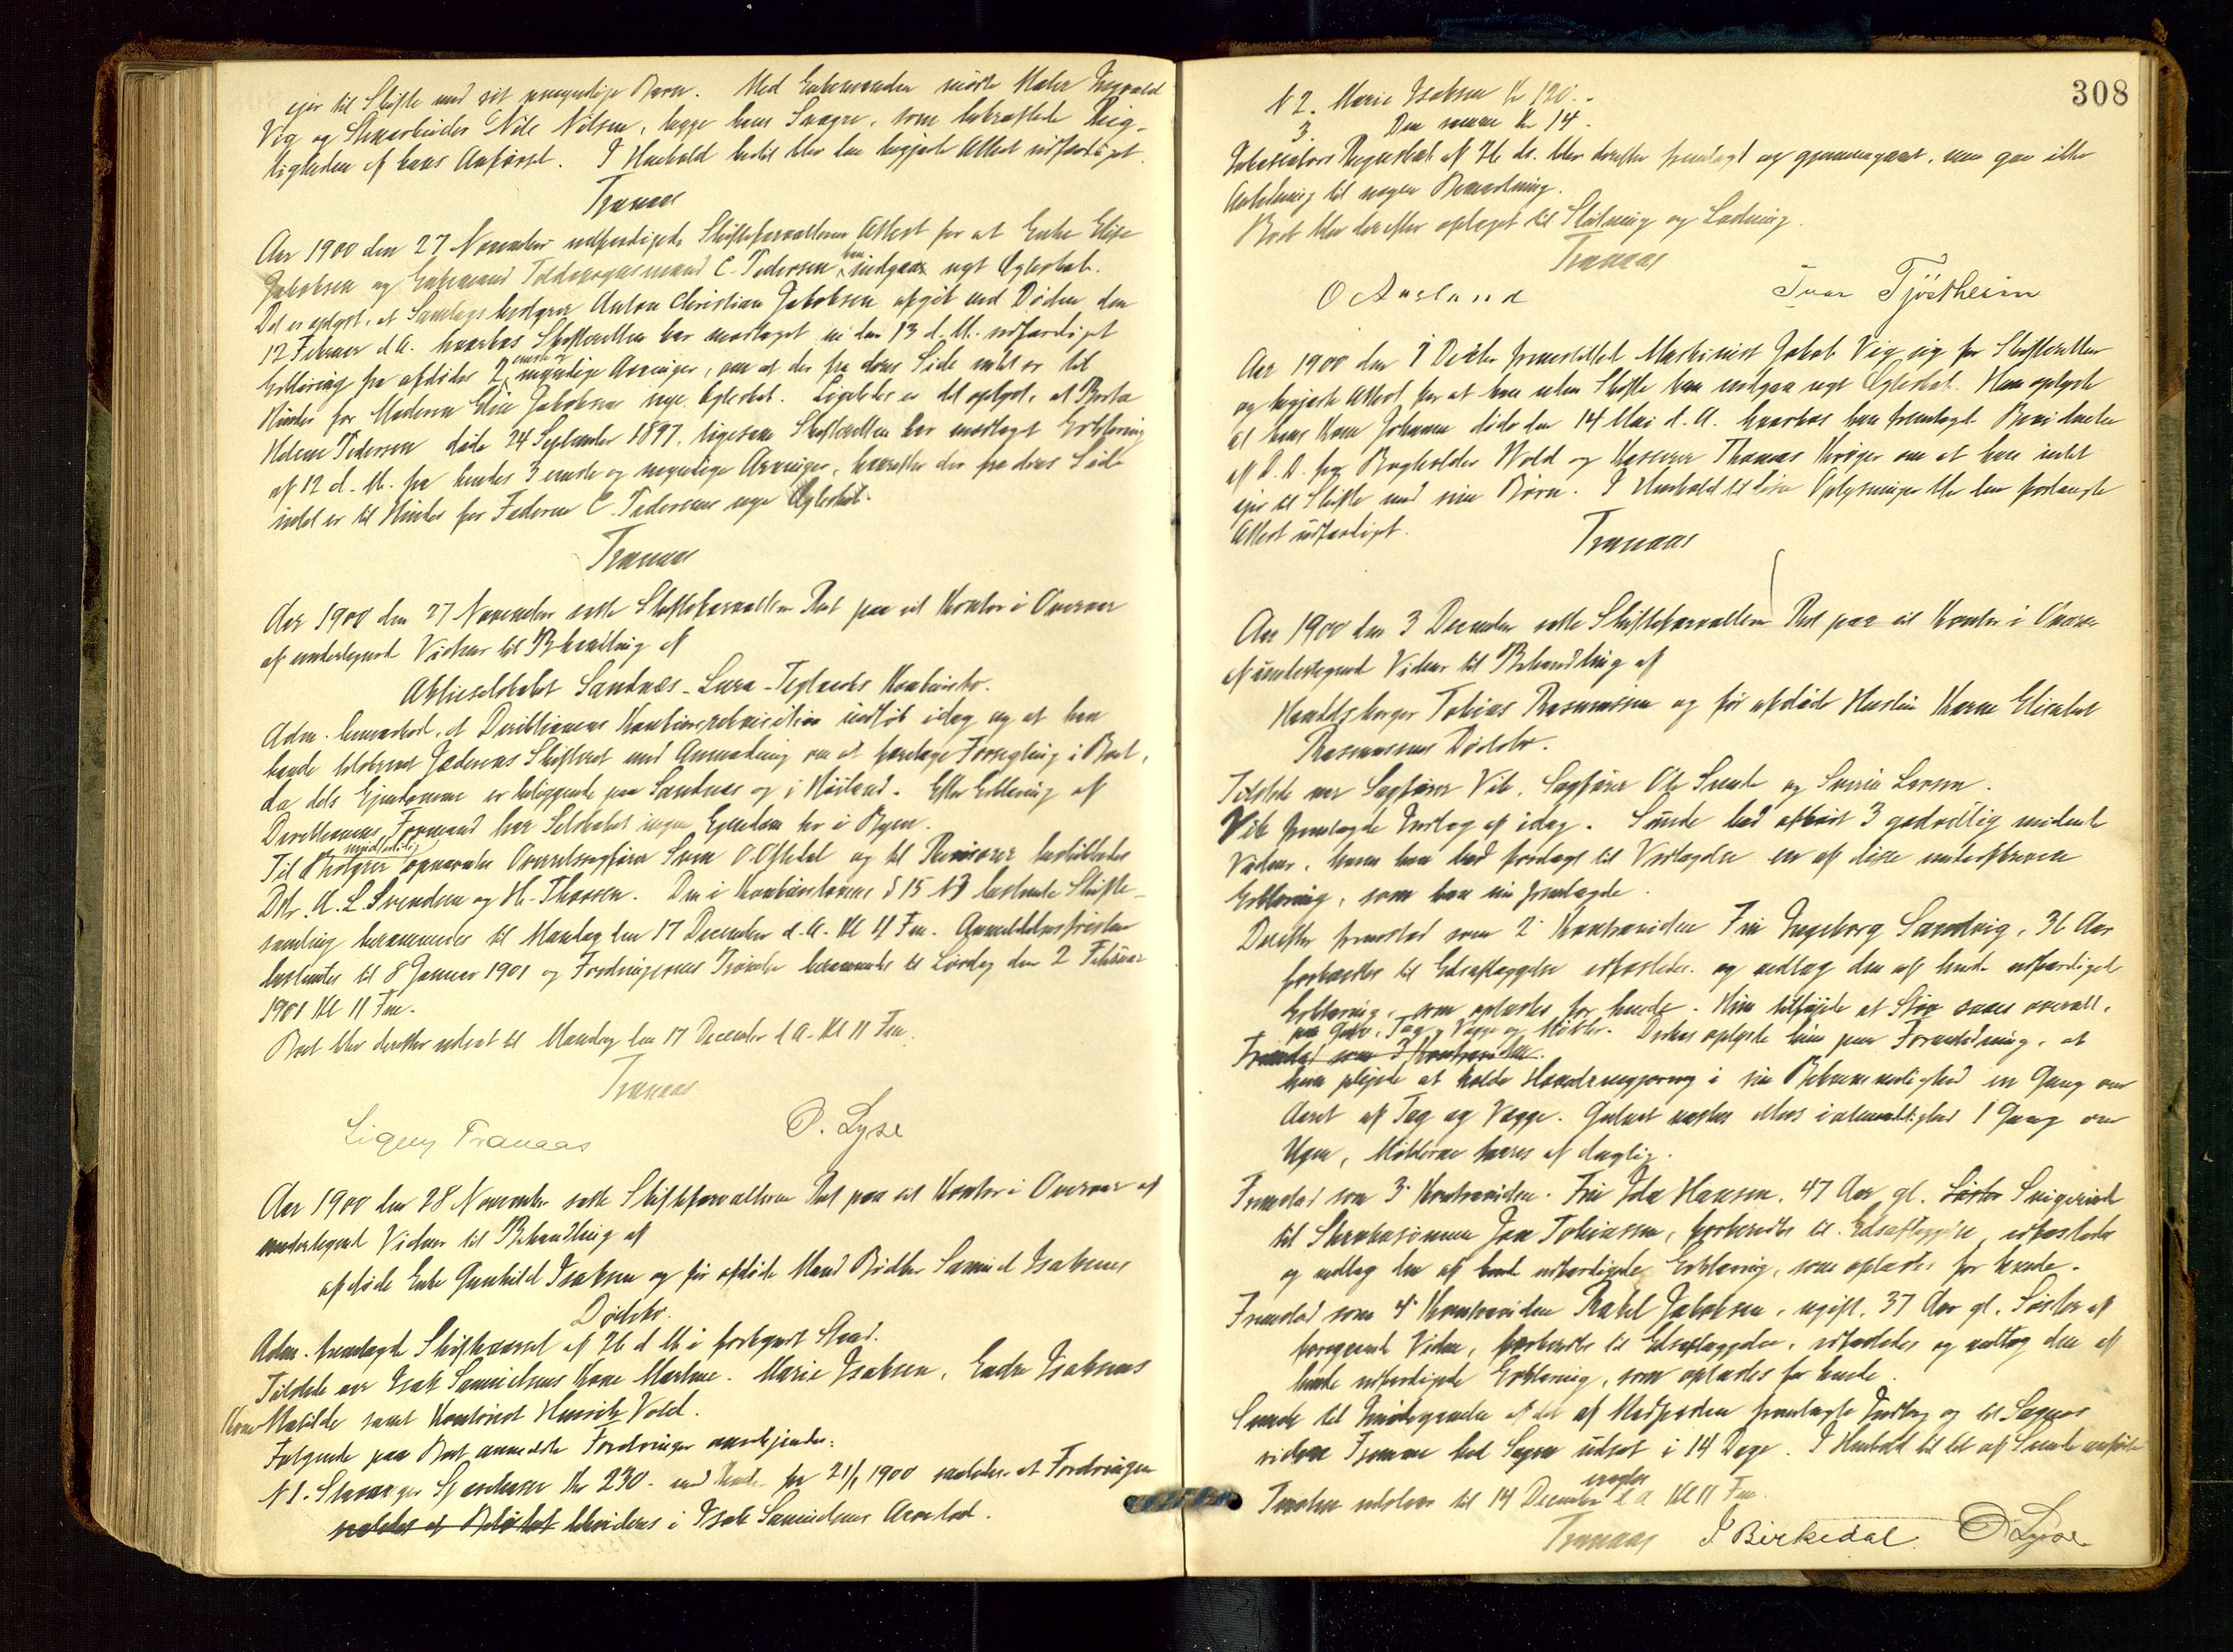 ejer til Skifte med sit umyndige Barn. Med Enkemanden mødte Maler Ingvald
Vig og Stenarbeider Nils Nilsen, begge hans Svogre, som bekræftede Rig-
tigheden af hans Anførsel. I Henhold hertil blev den begjærte Attest udfærdiget.
Tranaas
Aar 1900 den 27 November udfærdigede Skifteforvalteren Attest for at Enke Elise
Jakobsen og Enkemand Toldopsynsmand C. Pedersen kan indgaa nyt Ægteskab.
Det er oplyst, at Samlagsbestyrer Anton Christian Jakobsen afgik ved Døden den
12 Februar d.A. hvorhos Skifteretten har modtaget en den 13 d.M. udfærdiget
Erklæring fra afdødes 2 eneste og myndige Arvinger, om at der fra deres Side intet er til
Hinder for Moderen Elise Jakobsens nye Ægteskab. Ligeledes er det oplyst, at Berta
Helene Pedersen døde 24 September 1897, ligesom Skifteretten har modtaget Erklæring
af 12 d.M. fra hendes 3 eneste og myndige Arvinger, hvorefter der fra deres Side
intet er til Hinder for Faderen C. Pedersens nye Ægteskab.
Tranaas
Aar 1900 den 27 November satte Skifteforvalteren Ret paa sit Kontor i Overvær
af undertegnede Vidner til Behandling af
Aktieselskabet Sandnæs-Lura-Teglverks Konkursbo.
Adm. bemærkede, at Direktionens Konkursrekvisition indløb idag og at han
havde telefonert Jæderens Skifteret med Anmodning om at foretage Forsegling i Boet,
da dets Ejendomme er beliggende paa Sandnæs og i Høiland. Efter Erklæring af
Direktionens Formand har Selskabet ingen Ejendom her i Byen.
Til midlertidig Bestyrer opnævntes Overretssagfører Sven O. Oftedal og til Revisorer beskikkedes
DHr. A. L. Svendsen og H. Thorsen. Den i Konkurslovens § 15 N3 bestemte Skifte-
samling berammedes til Mandag den 17 December d.A. Kl 11 Fm. Anmeldelsesfristen
bestemtes til 8 Januar 1901 og Fordringernes Prøvelse berammedes til Lørdag den 2 Februar
1901 Kl 11 Fm.
Boet blev derefter udsat til Mandag den 17 December d.A. Kl 11 Fm.
Tranaas
Signy Tranaas O. Lyse
Aar 1900 den 28 November satte Skifteforvalteren Ret paa sit Kontor i Overvær af
undertegnede Vidner til Behandling af
afdøde Enke Gunhild Isaksen og før afdøde Mand Bødker Samuel Isaksens
Dødsbo.
Adm. fremlagde Skifteudkast af 26 d.M. i forkyndt Stand.
Tilstede var Isak Samuelsens Kone Martine. Marie Isaksen, Endre Isaksens
Kone Matilde samt Kontorist Henrik Vold.
Følgende paa Boet anmeldte Fordringer anerkjendes:
N 1. Stavanger Sparekasse Kr 230.- med Rente fra 21/1 1900 saaledes at Fordringen
saaledes at Beløbet likvideres i Isak Samuelsens Arvelod.
308
N 2. Marie Isaksen Kr 120.-
3. Den samme Kr 14.
Inkassators Regnskab af 26 ds. blev derefter fremlagt og gjennemgaaet, men gav ikke
Anledning til nogen Bemærkning.
Boet blev derefter optaget til Slutning og Lodning.
Tranaas
O Aasland Ivar Tjøstheim
Aar 1900 den 1 December fremstillede Maskinist Jakob Vig sig for Skifteretten
og begjærte Attest for at han uden Skifte kan indgaa nyt Ægteskab. Han oplyste
at hans Kone Johanne døde den 14 Mai d.A. hvorhos han fremlagde Bevidnelse
af D.D. fra Bogholder Wold og Kasserer Thomas Krøger om at han intet
ejer til Skifte med sine Børn. I Henhold til disse Oplysninger blev den forlangte
Attest udfærdiget.
Tranaas
Aar 1900 den 3 December satte Skifteforvalteren Ret paa sit Kontor i Overvær
af undertegnede Vidner til Behandling af
Handelsborger Tobias Rasmussen og før afdøde Hustru Karen Elisabet
Rasmussens Dødsbo.
Tilstede var Sagfører Vik. Sagfører Ole Sunde og Sverre Larsen.
Vik fremlagde Indlæg af idag. Sunde lod afhøre 3 godvillig mødende
Vidner, hvem han lod forelægge til Vedtagelse en af disse underskreven
Erklæring, som han nu fremlagde.
Derefter fremstod som 2' Kontravidne Fru Ingeborg Sandvig, 36 Aar
forberedtes til Edsaflæggelse edfæstedes og vedtog den af hende udfærdigede
Erklæring, som oplæstes for hende. Hun tilføiede at Støv saaes overalt,
paa Gulv, Tag, Vægge og Møbler. Derhos oplyste hun paa Foranledning, at
Fremstod som 3' Kontravidne.
hun pleiede at holde Hovedrengjøring i sin Bekvemmelighed en Gang om
Aaret af Tag og Vægge. Gulvet vaskes ellers i almindelighed 1 Gang om
Ugen, Møblerne tørres af daglig.
Fremstod som 3' Kontravidne. Fru Ida Hansen, 47 Aar gl. Søster Svigerinde
til Skrabasønnen Jan Tobiassen, forberedtes til Edsaflæggelse, edfæstedes
og vedtog den af hende udfærdigede Erklæring, som oplæstes for hende.
Fremstod som 4' Kontravidne Rakel Jakobsen, ugift, 37 Aar gl. Søster af
foregaaende Vidne, forberedtes til Edsaflæggelse, edfæstedes og vedtog den af
hende udfærdigede Erklæring, som oplæstes for hende.
Sunde til Imødegaaelse af det af Modparten fremlagte Indlæg og til Sagens
videre Fremme bad Sagen udsat i 14 Dage. I Henhold til det af Sunde anførte
Sagen udsættes til 14 December d.A Kl 11 Fm.
Tranaas J Birkedal O Lyse